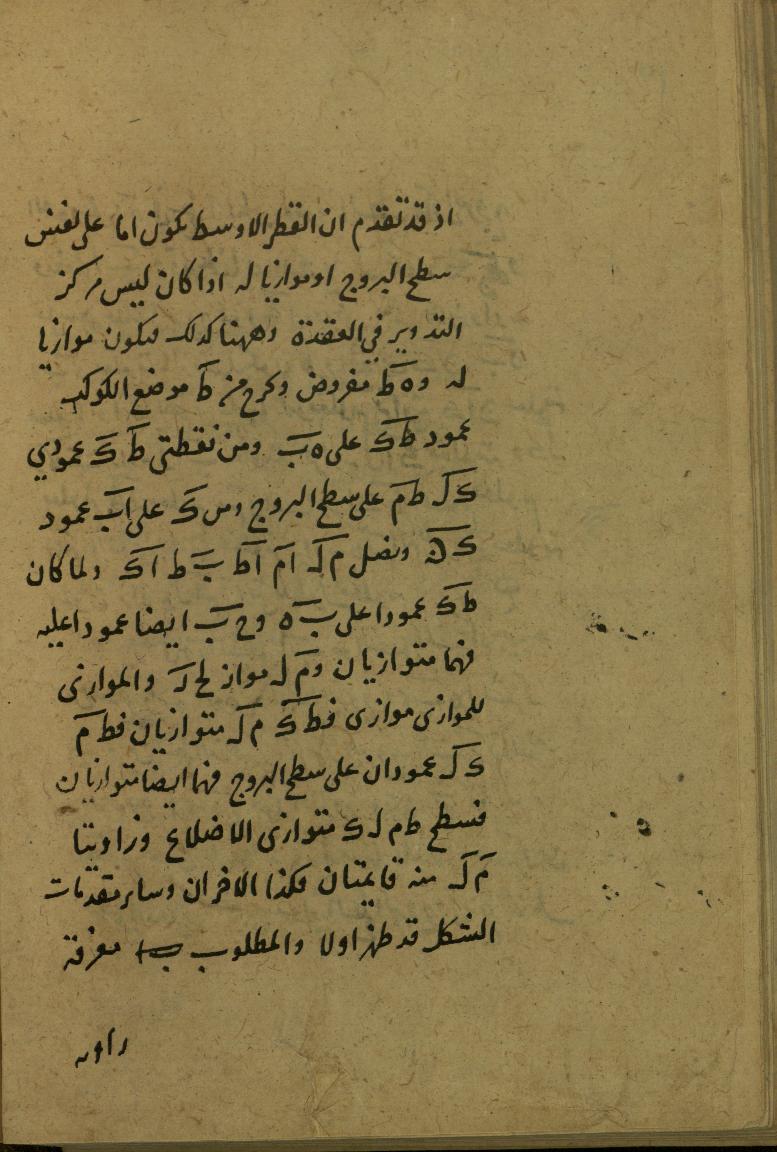 اذ قد تقدم ان القطر الاوسط يكون اما على نفس
سطح البروج او موازيا له اذا كان ليس مركز
التدوير في العقدة وههنا كذلك فيكون موازيا
له و ه ط مفروض ونخرج من ط موضع الكوكب
عمود ط ك على ه ب ومن نقطتي ط ك عمودي
ك ل ط م على سطح البروج ومن ك على ا ب عمود
ك ن ونصل م ل ا م ا ط ب ط ا ك ولما كان
ط ك عمودا على ب ه و ح ب ايضا عمودا عليه
فهما متوازيان و م ل مواز لـ والموازى
للموازى موازى فط ك م ل متوازيان فط م
ك ل عمودان على سطح البروج فهما ايضا متوازيان
فسطح ط م ل ك متوازى الاضلاع وزاويتا
م ل منه قايمتان فكذا الاخران وساير مقدمات
الشكل قد ظهر اولا والمطلوب معرفة
زاوية